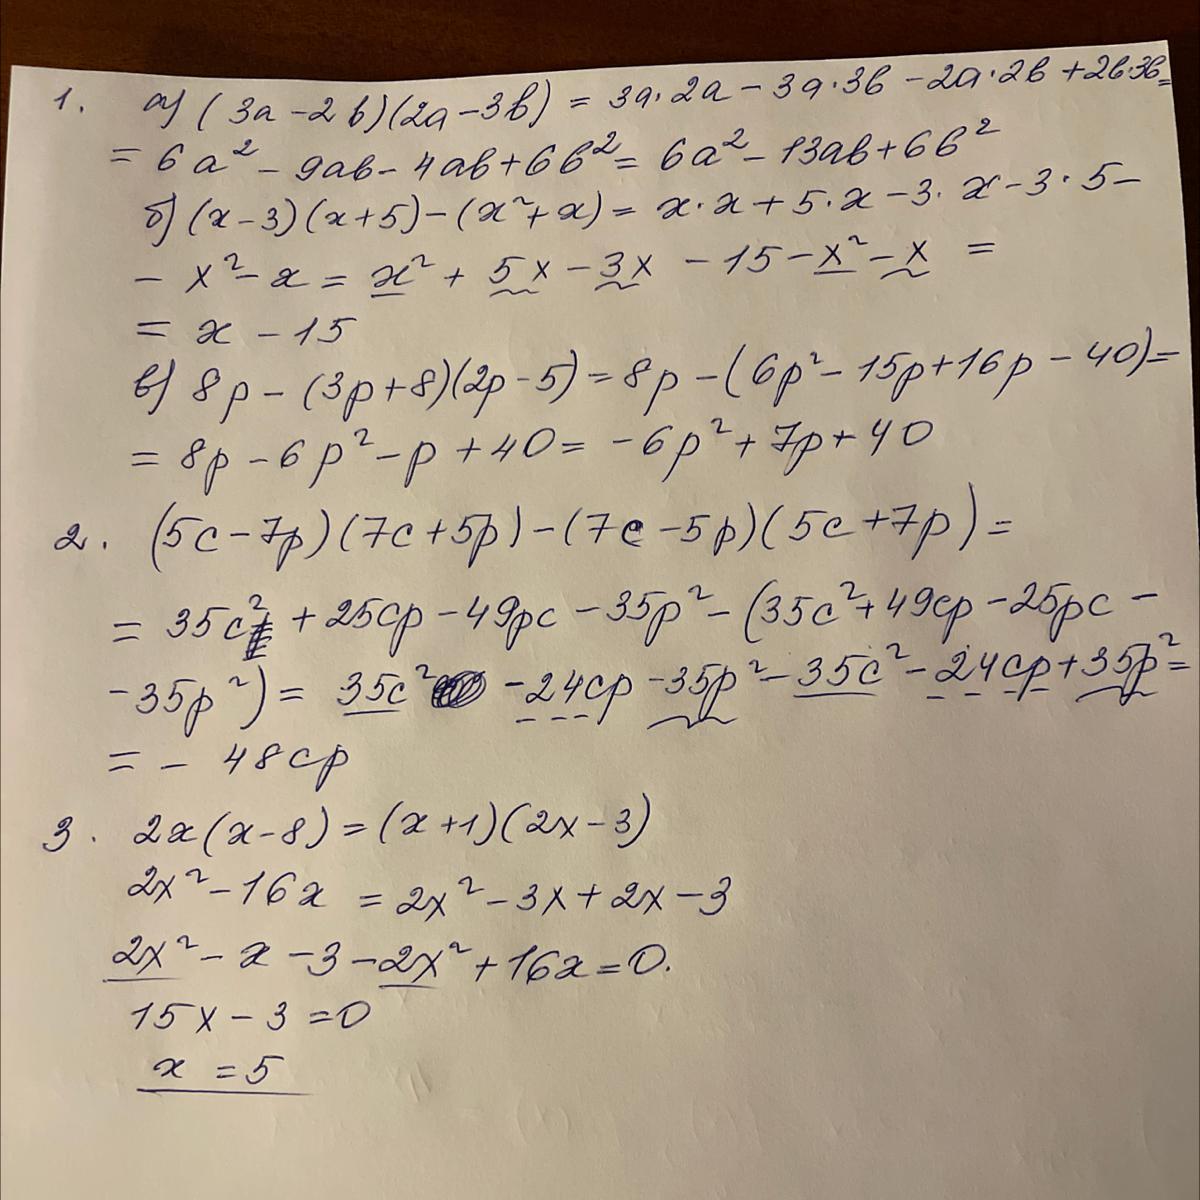 1. а) (3a - 2b)(2a - 3b) = 3a·2a - 3a·3b - 2a·2b + 2b·3b =
= 6a² - 9ab - 4ab + 6b² = 6a² - 13ab + 6b²
б) (x - 3)(x + 5) - (x² + x) = x·x + 5·x - 3·x - 3·5 -
- x² - x = x² + 5x - 3x - 15 - x² - x =
= x - 15
в) 8p - (3p + 8)(2p - 5) = 8p - (6p² - 15p + 16p - 40) =
= 8p - 6p² - p + 40 = -6p² + 7p + 40
2. (5c - 7p)(7c + 5p) - (7c - 5p)(5c + 7p) =
= 35c² + 25cp - 49pc - 35p² - (35c² + 49cp - 25pc -
- 35p²) = 35c² - 24cp - 35p² - 35c² - 24cp + 35p² =
= - 48cp
3. 2x(x - 8) = (x + 1)(2x - 3)
2x² - 16x = 2x² - 3x + 2x - 3
2x² - x - 3 - 2x² + 16x = 0.
15x - 3 = 0
x = 5